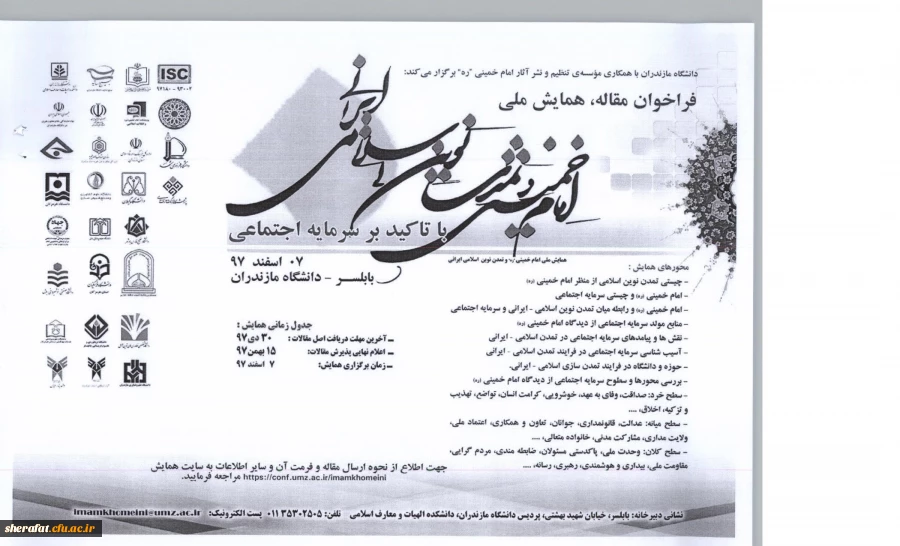 دانشگاه مازندران با همکاری مؤسسه‌ی تنظیم و نشر آثار امام خمینی "ره" برگزار می‌کند:
فراخوان مقاله، همایش ملی
امام خمینی و تمدن نوین اسلامی ایرانی
با تاکید بر سرمایه اجتماعی
همایش ملی امام خمینی (ره) و تمدن نوین اسلامی ایرانی
۰۷ اسفند ۹۷
بابلسر - دانشگاه مازندران
ISC
محورهای همایش:
- چیستی تمدن نوین اسلامی از منظر امام خمینی (ره)
- امام خمینی (ره) و چیستی سرمایه اجتماعی
- امام خمینی (ره) و رابطه میان تمدن نوین اسلامی - ایرانی و سرمایه اجتماعی
- منابع مولد سرمایه اجتماعی از دیدگاه امام خمینی (ره)
- نقش ها و پیامدهای سرمایه اجتماعی در تمدن اسلامی - ایرانی
- آسیب شناسی سرمایه اجتماعی در فرایند تمدن اسلامی - ایرانی
- حوزه و دانشگاه در فرایند تمدن سازی اسلامی - ایرانی.
- بررسی محورها و سطوح سرمایه اجتماعی از دیدگاه امام خمینی (ره)
- سطح خرد: صداقت، وفای به عهد، خوشرویی، کرامت انسان، تواضع، تهذیب
و تزکیه، اخلاق، ....
- سطح میانه: عدالت، قانونمداری، جوانان، تعاون و همکاری، اعتماد ملی،
ولایت مداری، مشارکت مدنی، خانواده متعالی، ....
- سطح کلان: وحدت ملی، پاکدستی مسئولان، ضابطه مندی، مردم گرایی،
مقاومت ملی، بیداری و هوشمندی، رهبری، رسانه، ....
جدول زمانی همایش:
- آخرین مهلت دریافت اصل مقالات: ۳۰ دی ۹۷
- اعلام نهایی پذیرش مقالات: ۱۵ بهمن ۹۷
- زمان برگزاری همایش: ۷ اسفند ۹۷
جهت اطلاع از نحوه ارسال مقاله و فرمت آن و سایر اطلاعات به سایت همایش
https://conf.umz.ac.ir/imamkhomeini مراجعه فرمایید.
نشانی دبیرخانه: بابلسر، خیابان شهید بهشتی، پردیس دانشگاه مازندران، دانشکده الهیات و معارف اسلامی تلفن: ۰۱۱۳۵۳۰۲۵۰۵ پست الکترونیک: imamkhomeini@umz.ac.ir
sherafat.cfu.ac.ir